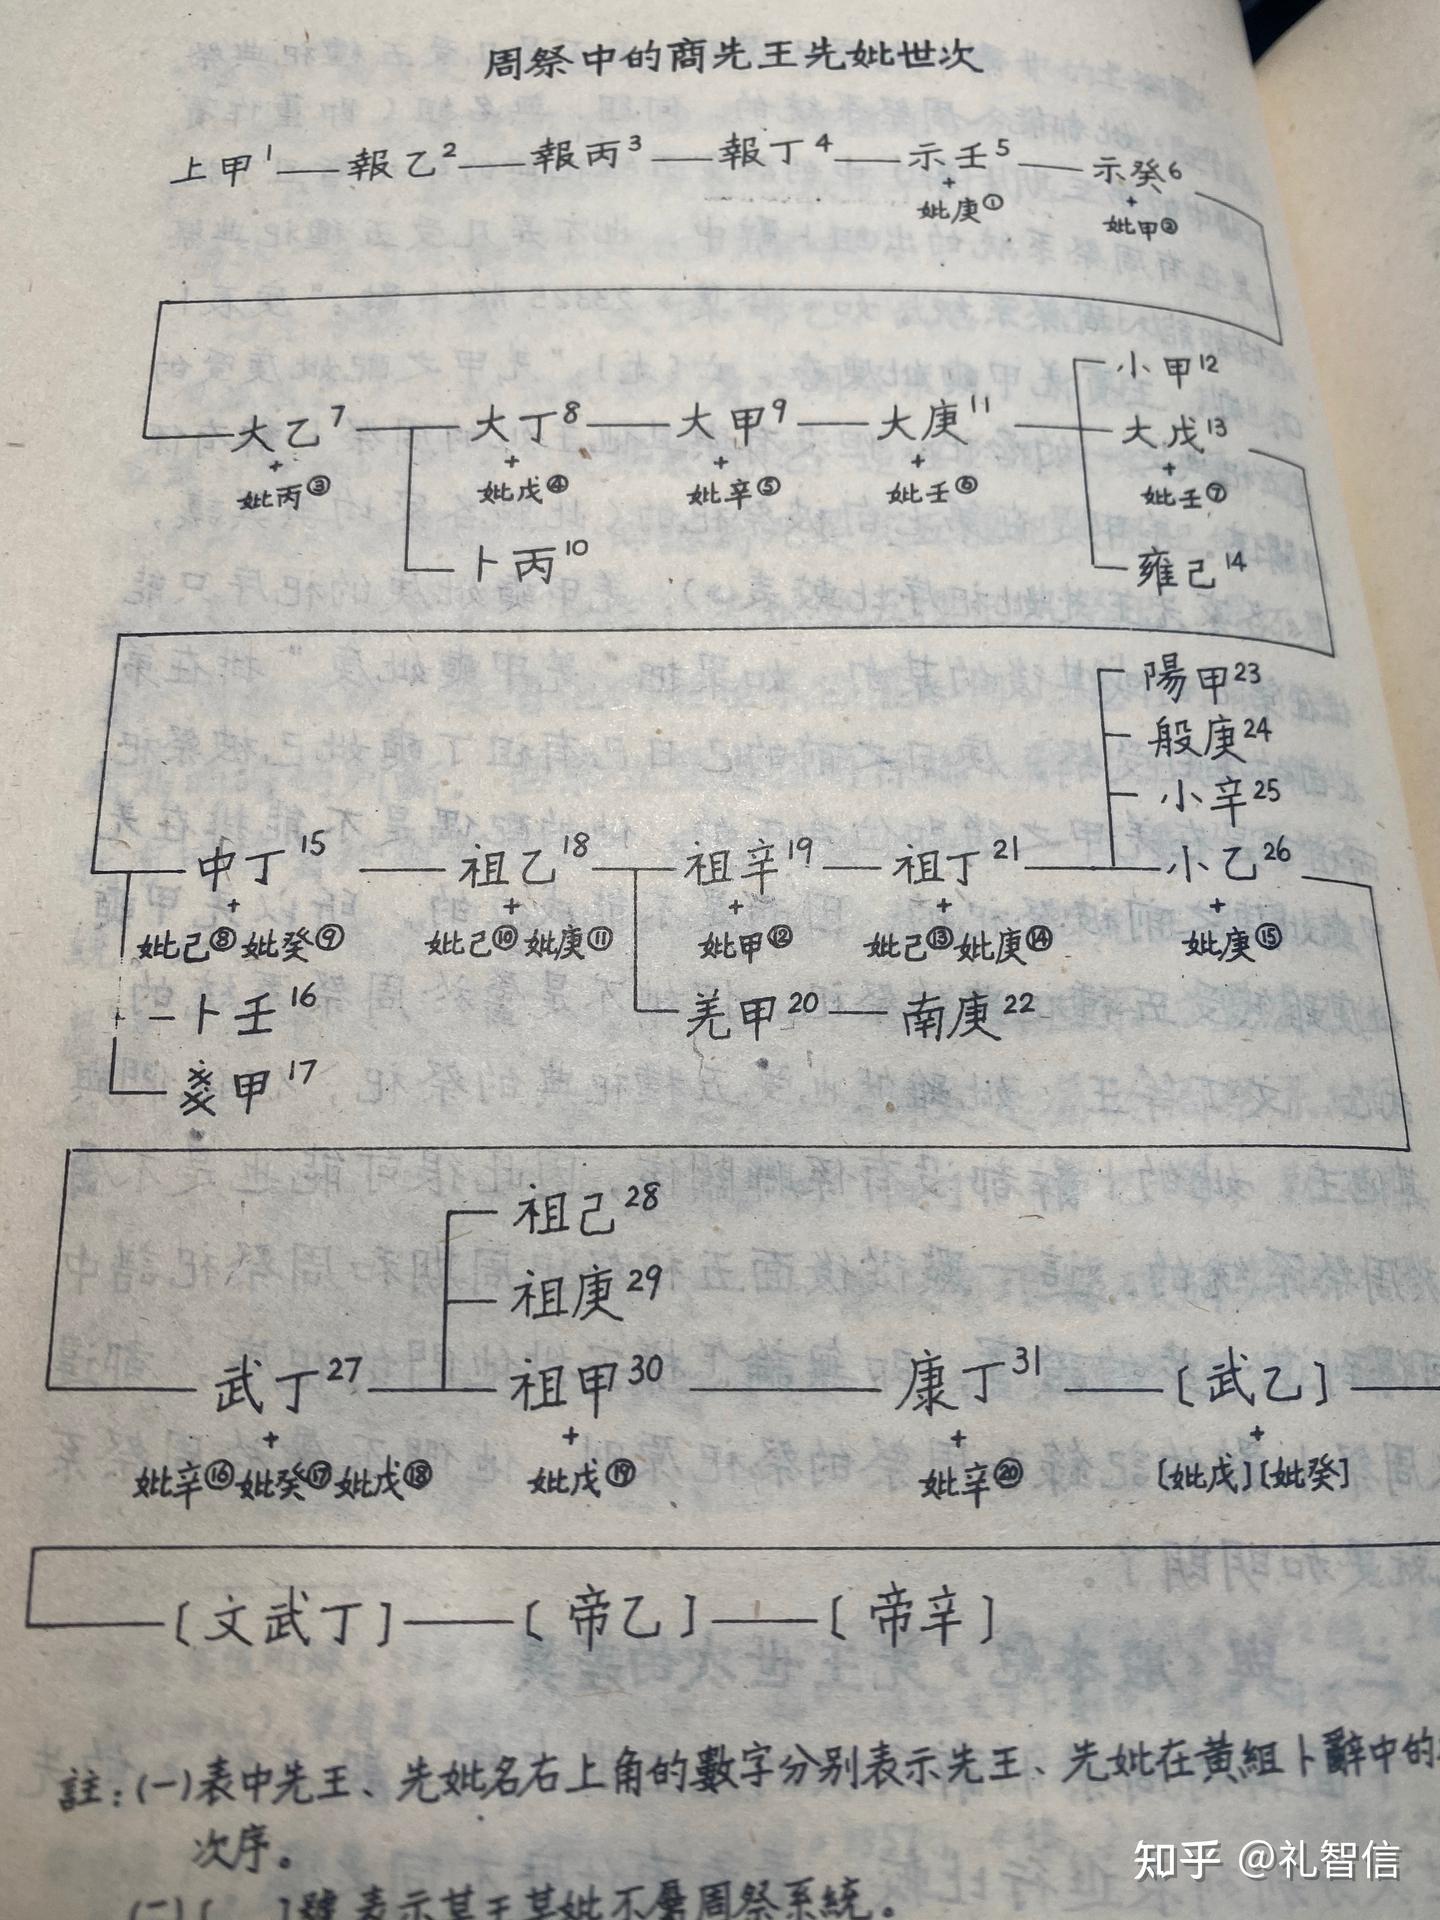 周祭中的商先王先妣世次
上甲1 — 報乙2 — 報丙3 — 報丁4 — 示壬5 — 示癸6
+ +
妣庚① 妣甲②
小甲12
大乙7 — 大丁8 — 大甲9 — 大庚11 大戊13
+ + + + +
妣丙③ 妣戊④ 妣辛⑤ 妣壬⑥ 妣壬⑦
卜丙10 雍己14
陽甲23
般庚24
小辛25
中丁15 — 祖乙18 — 祖辛19 — 祖丁21 — 小乙26
+ + + + +
妣己⑧妣癸⑨ 妣己⑩妣庚⑪ 妣甲⑫ 妣己⑬妣庚⑭ 妣庚⑮
卜壬16 羌甲20 — 南庚22
戔甲17
祖己28
祖庚29
武丁27 — 祖甲30 — 康丁31 — 〔武乙〕
+ + + +
妣辛⑯妣癸⑰妣戊⑱ 妣戊⑲ 妣辛⑳ [妣戊][妣癸]
〔文武丁〕—〔帝乙〕—〔帝辛〕
註：(一)表中先王、先妣名右上角的數字分别表示先王、先妣在黄組卜辭中的
次序。
(二)〔 〕號表示某王某妣不屬周祭系統。
知乎 @礼智信